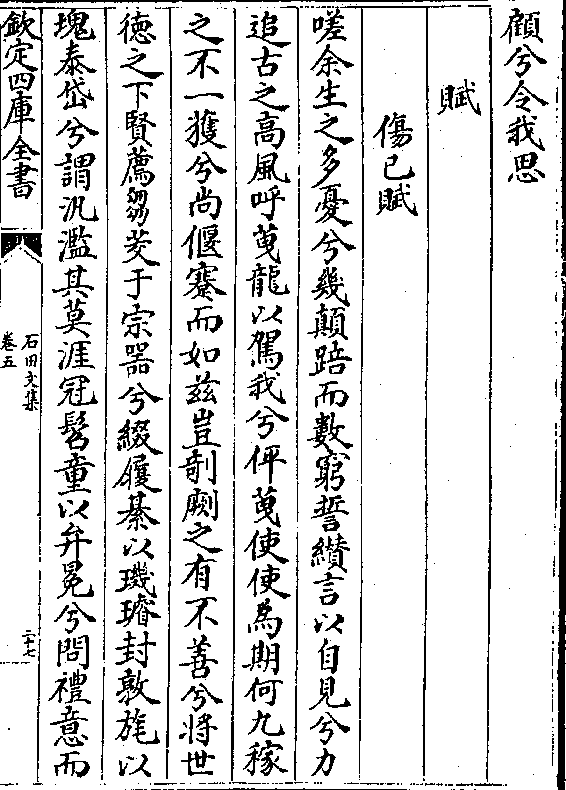 顧兮令我思
賦
傷已賦
嗟余生之多憂兮幾顛踣而數窮誓纘言以自見兮力
追古之高風呼䓕龍以駕我兮伻䓕使使為期何九稼
之不一獲兮尚偃蹇而如兹豈剞劂之有不善兮將世
德之下賢薦芻茭于宗器兮綴屨綦以璣璿封敦旄以
塊泰岱兮謂汎濫其莫涯冠髫童以弁冕兮問禮意而
欽定四庫全書
石田文集
卷五
二十七